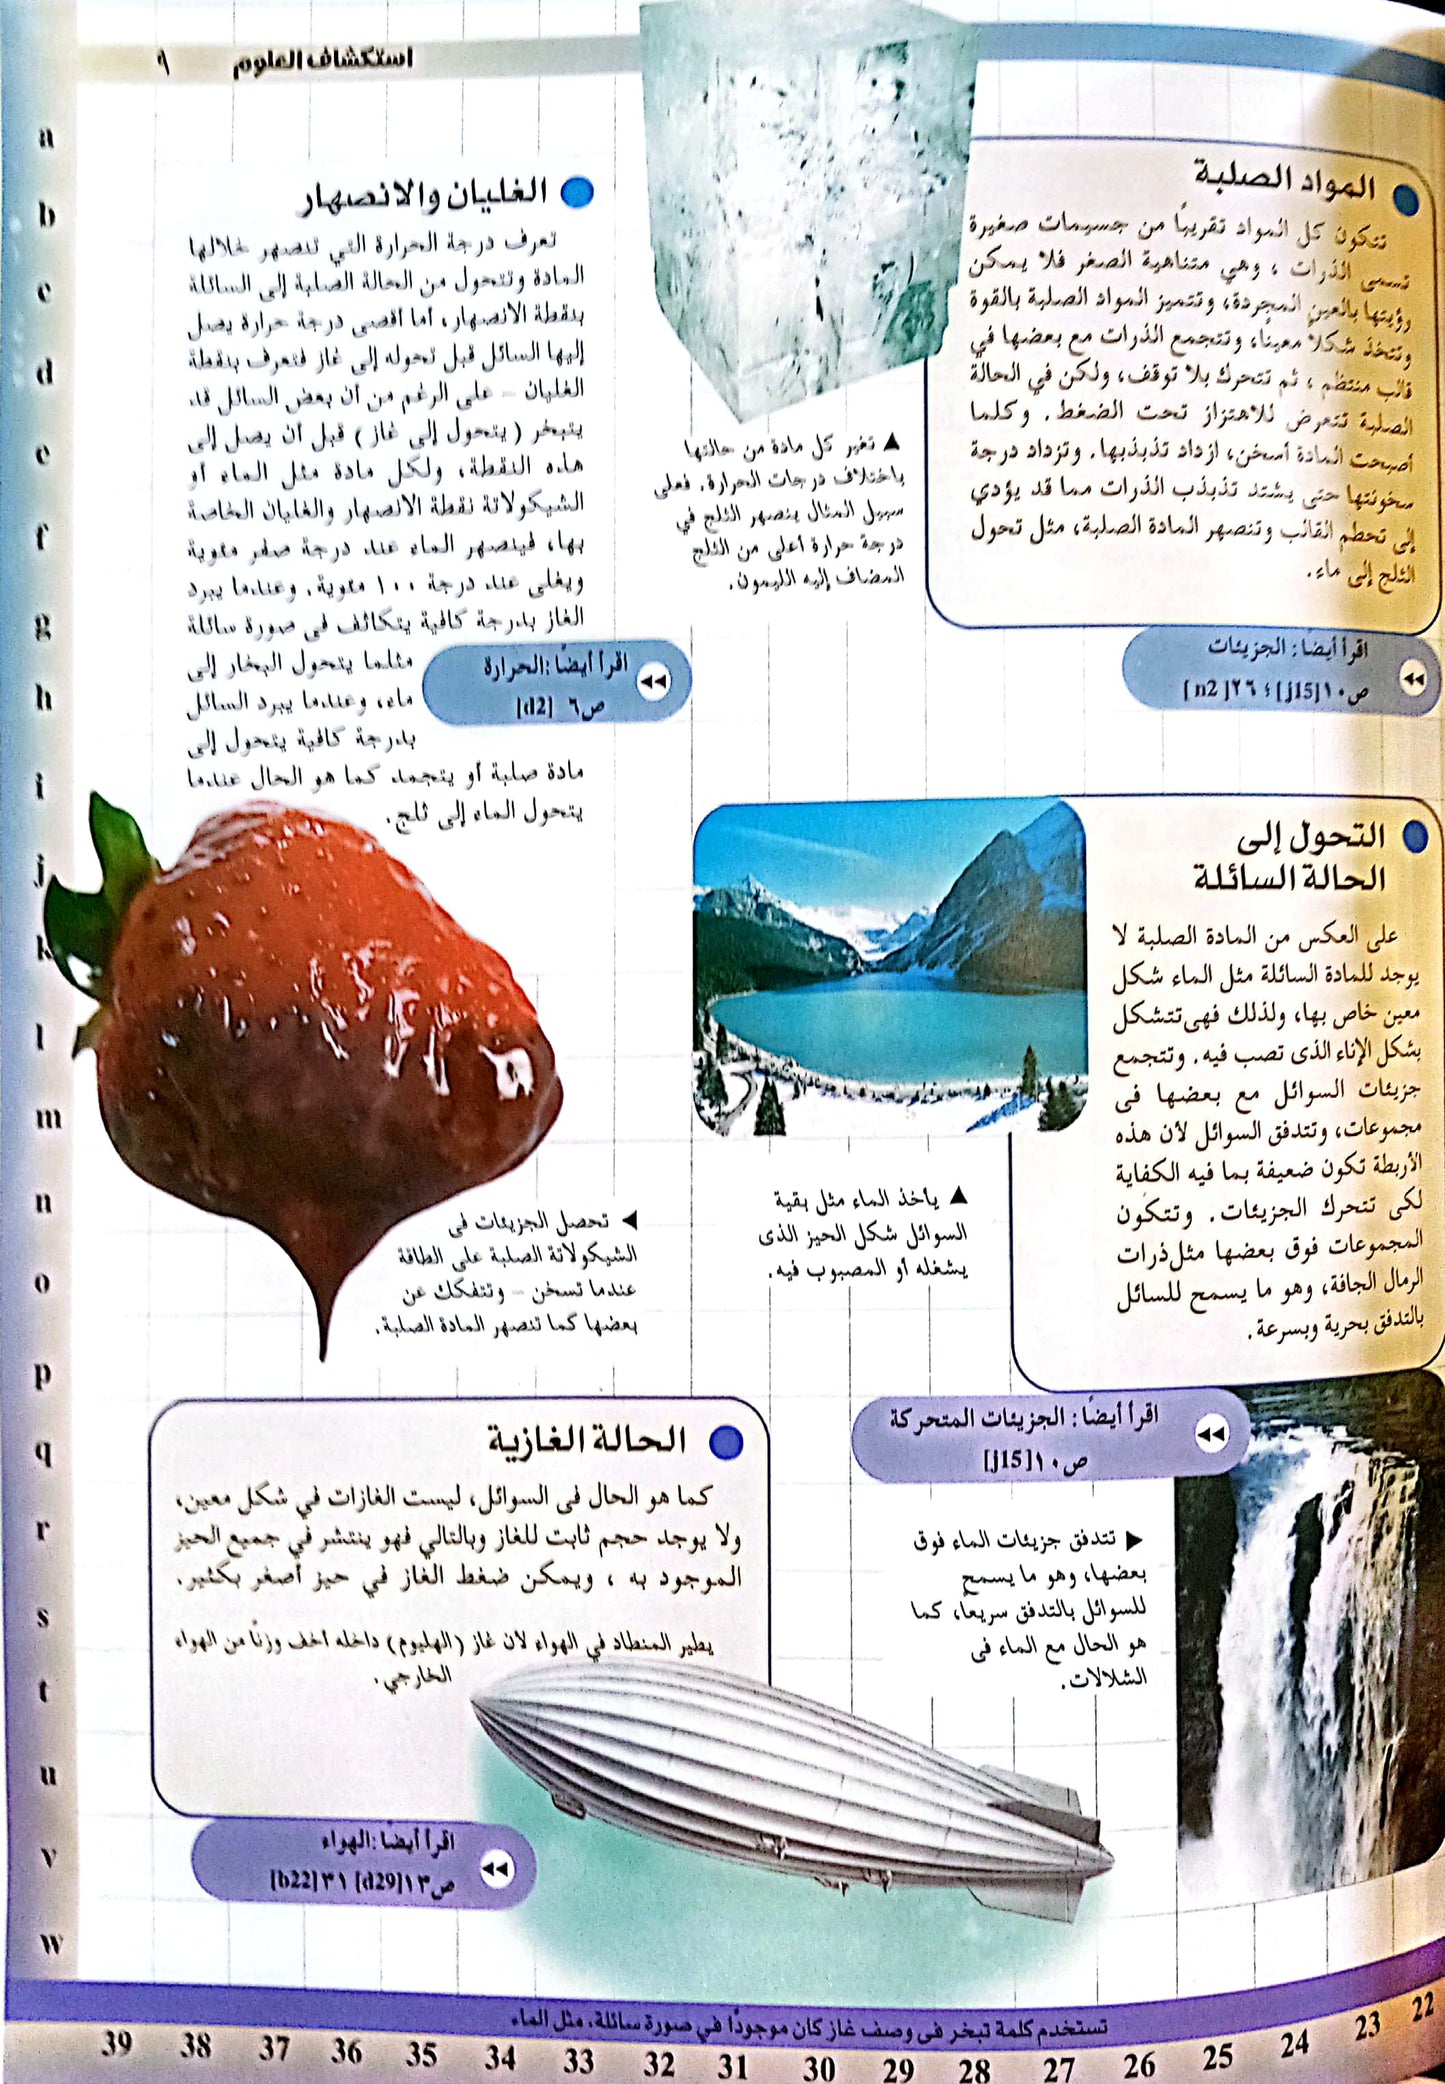 استكشاف العلوم
٩
المواد الصلبة
تتكون كل المواد تقريبًا من جسيمات صغيرة
تسمى الذرات ، وهي متناهية الصغر فلا يمكن
رؤيتها بالعين المجردة، وتتميز المواد الصلبة بالقوة
وتتخذ شكلا معينًا، وتتجمع الذرات مع بعضها في
قالب منتظم ، ثم تتحرك بلا توقف، ولكن في الحالة
الصلبة تتعرض للاهتزاز تحت الضغط. وكلما
أصبحت المادة أسخن، ازداد تذبذبها. وتزداد درجة
سخونتها حتى يشتد تذبذب الذرات مما قد يؤدي
إلى تحطم القالب وتنصهر المادة الصلبة، مثل تحول
الثلج إلى ماء.
اقرأ أيضًا: الجزيئات
ص١٠[j15]؛ ٢٦[n2]
▲ تغير كل مادة من حالتها
باختلاف درجات الحرارة. فعلى
سبيل المثال ينصهر الثلج في
درجة حرارة أعلى من الثلج
المضاف إليه الليمون.
الغليان والانصهار
تعرف درجة الحرارة التي تنصهر خلالها
المادة وتتحول من الحالة الصلبة إلى السائلة
بنقطة الانصهار، أما أقصى درجة حرارة يصل
إليها السائل قبل تحوله إلى غاز فتعرف بنقطة
الغليان – على الرغم من أن بعض السائل قد
يتبخر ( يتحول إلى غاز ) قبل أن يصل إلى
هذه النقطة، ولكل مادة مثل الماء أو
الشيكولاتة نقطة الانصهار والغليان الخاصة
بها، فينصهر الماء عند درجة صفر مئوية
ويغلى عند درجة ١٠٠ مئوية. وعندما يبرد
الغاز بدرجة كافية يتكاثف فى صورة سائلة
مثلما يتحول البخار إلى
ماء، وعندما يبرد السائل
بدرجة كافية يتحول إلى
مادة صلبة أو يتجمد كما هو الحال عندما
يتحول الماء إلى ثلج.
اقرأ أيضًا :الحرارة
ص٦ [d2]
التحول إلى
الحالة السائلة
على العكس من المادة الصلبة لا
يوجد للمادة السائلة مثل الماء شكل
معين خاص بها، ولذلك فهى تتشكل
بشكل الإناء الذى تصب فيه. وتتجمع
جزيئات السوائل مع بعضها فى
مجموعات، وتتدفق السوائل لأن هذه
الأربطة تكون ضعيفة بما فيه الكفاية
لكى تتحرك الجزيئات. وتتكون
المجموعات فوق بعضها مثل ذرات
الرمال الجافة، وهو ما يسمح للسائل
بالتدفق بحرية وبسرعة.
▲ يأخذ الماء مثل بقية
السوائل شكل الحيز الذى
يشغله أو المصبوب فيه.
◀ تحصل الجزيئات فى
الشيكولاتة الصلبة على الطاقة
عندما تسخن – وتتفكك عن
بعضها كما تنصهر المادة الصلبة.
اقرأ أيضًا: الجزيئات المتحركة
ص١٠[j15]
▶ تتدفق جزيئات الماء فوق
بعضها، وهو ما يسمح
للسوائل بالتدفق سريعا، كما
هو الحال مع الماء فى
الشلالات.
الحالة الغازية
كما هو الحال فى السوائل، ليست الغازات في شكل معين،
ولا يوجد حجم ثابت للغاز وبالتالي فهو ينتشر في جميع الحيز
الموجود به ، ويمكن ضغط الغاز في حيز أصغر بكثير.
يطير المنطاد في الهواء لأن غاز (الهليوم) داخله أخف وزنًا من الهواء
الخارجي.
اقرأ أيضًا :الهواء
ص١٣[d29] ٣١[b22]
تستخدم كلمة تبخر فى وصف غاز كان موجودًا في صورة سائلة، مثل الماء
a
b
c
d
e
f
g
h
i
j
k
l
m
n
o
p
q
r
s
t
u
v
w
39 38 37 36 35 34 33 32 31 30 29 28 27 26 25 24 23 22